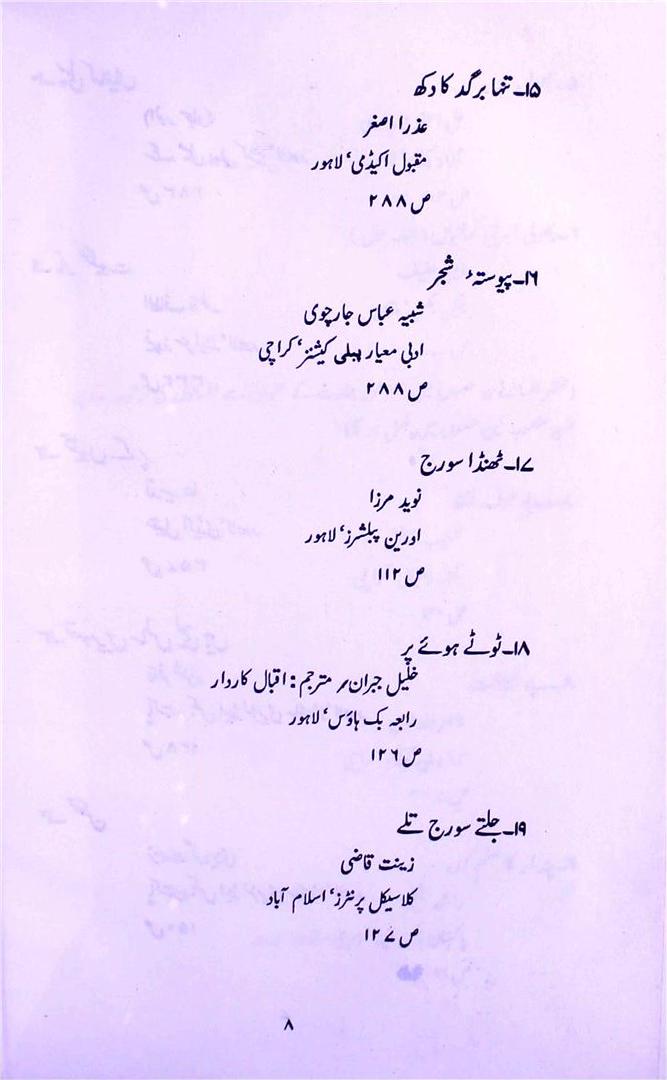 ۱۵۔ تنہا برگد کا دکھ
عذرا اصغر
مقبول اکیڈمی‘ لاہور
ص ۲۸۸
۱۶۔ پیوستۂ شجر
شبیہ عباس جارچوی
ادبی معیار پبلی کیشنز‘ کراچی
ص ۲۸۸
۱۷۔ ٹھنڈا سورج
نوید مرزا
اورین پبلشرز‘ لاہور
ص ۱۱۲
۱۸۔ ٹوٹے ہوئے پر
خلیل جبران؍ مترجم: اقبال کاردار
رابعہ بک ہاؤس‘ لاہور
ص ۱۲۶
۱۹۔ جلتے سورج تلے
زینت قاضی
کلاسیکل پرنٹرز‘ اسلام آباد
ص ۱۲۷
۸